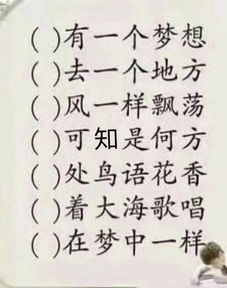 ( )有一个梦想
( )去一个地方
( )风一样飘荡
( )可知是何方
( )处鸟语花香
( )着大海歌唱
( )在梦中一样